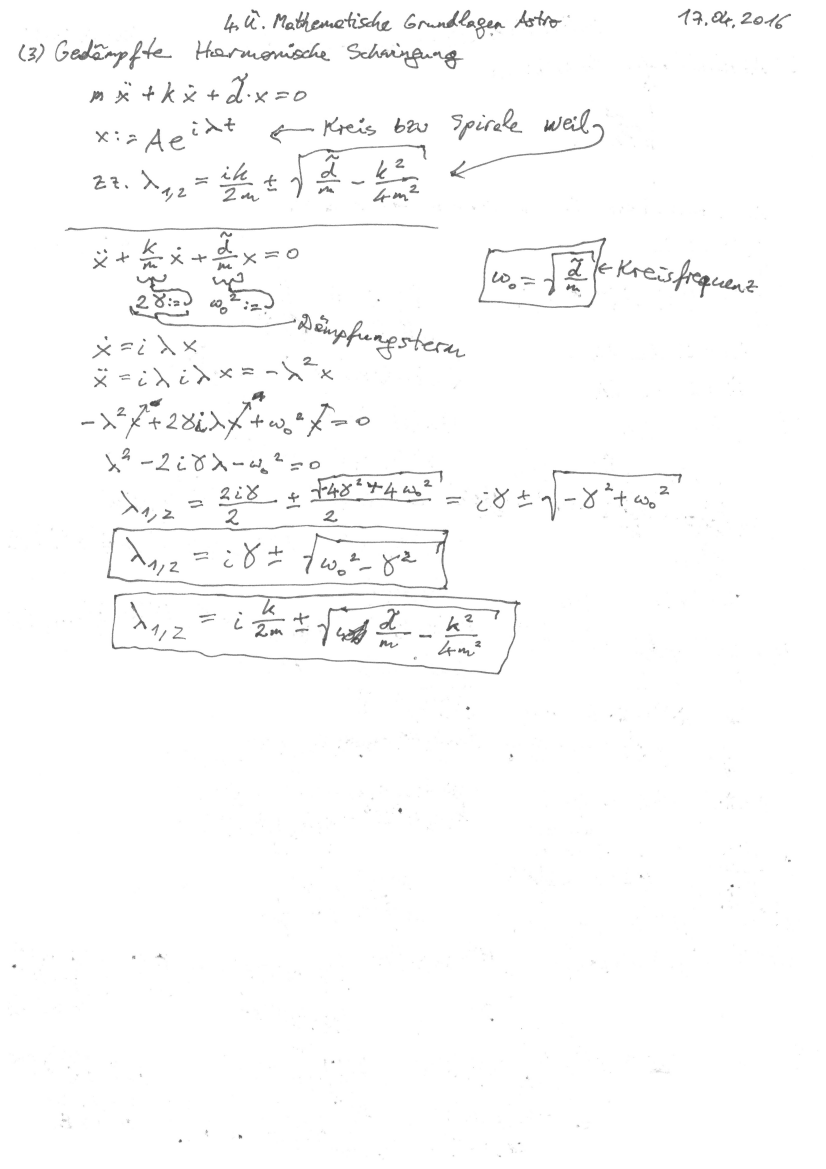 4. Ü. Mathematische Grundlagen Astro 17.04.2016
(3) Gedämpfte Harmonische Schwingung
m ẍ + k ẋ + d̃·x = 0
x := A e^{iλt} ← Kreis bzw Spirale weil
zz. λ_{1,2} = ik/2m ± √(d̃/m − k²/4m²)
ẍ + k/m ẋ + d̃/m x = 0
2γ := ω₀² :=
ω₀ = √(d̃/m) ← Kreisfrequenz
Dämpfungsterm
ẋ = i λ x
ẍ = i λ i λ x = −λ² x
−λ² x + 2γiλ x + ω₀² x = 0
λ² − 2iγλ − ω₀² = 0
λ_{1,2} = 2iγ/2 ± √(−4γ² + 4ω₀²)/2 = iγ ± √(−γ² + ω₀²)
λ_{1,2} = iγ ± √(ω₀² − γ²)
λ_{1,2} = i k/2m ± √(d̃/m − k²/4m²)